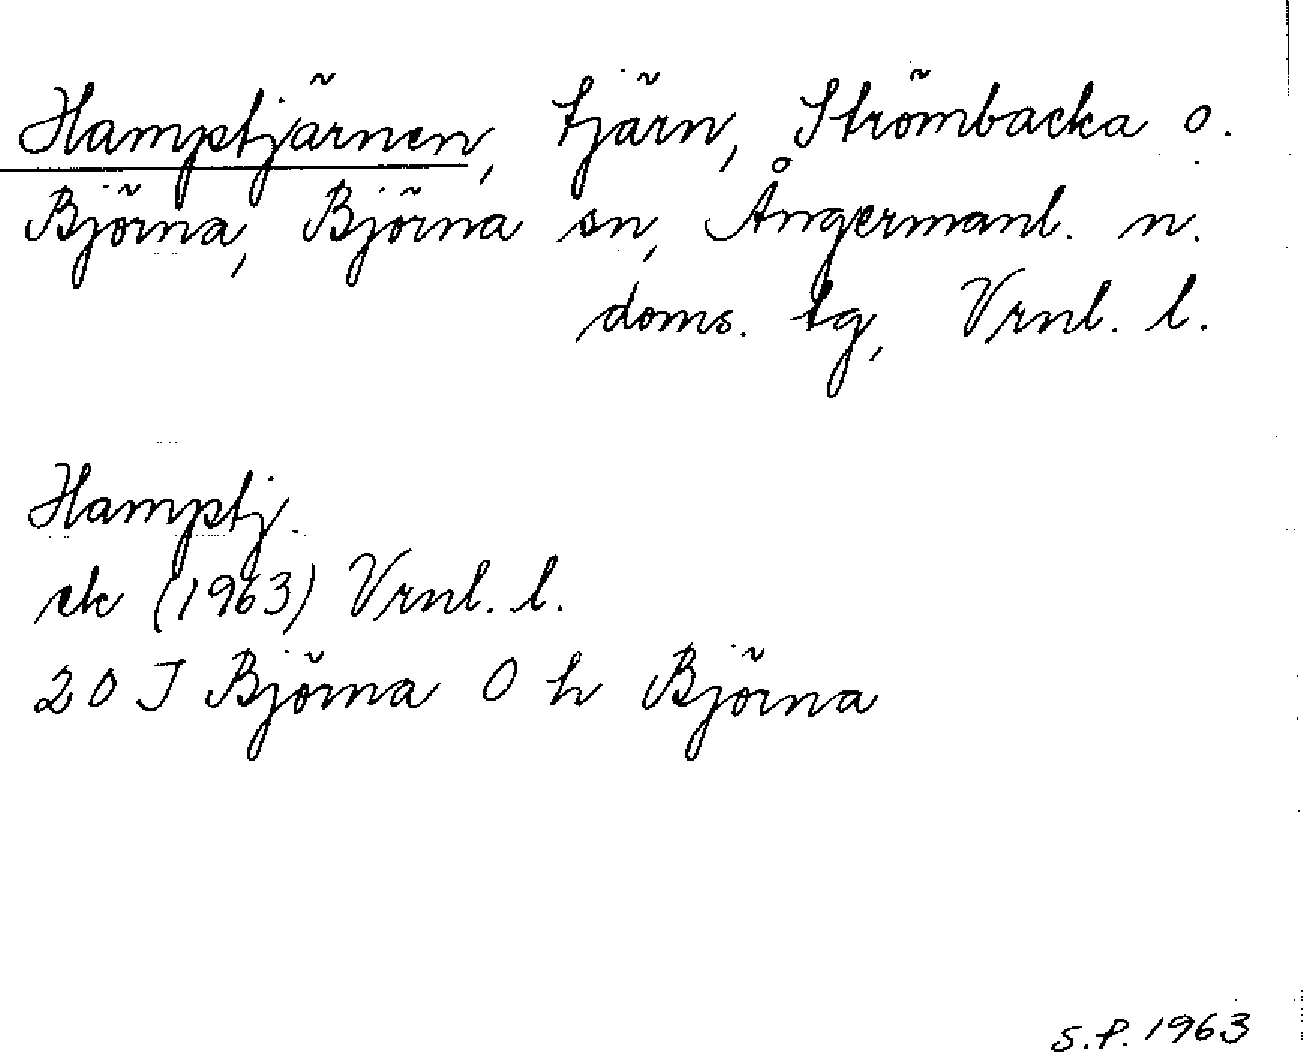 Hamptjärnen, tjärn, Strömbacka o.
Björna, Björna sn, Ångermanl. n.
doms. tg, Vrnl. l.
Hamptj.
ek (1963) Vrnl. l.
20 J Björna 0 h Björna
S.P. 1963